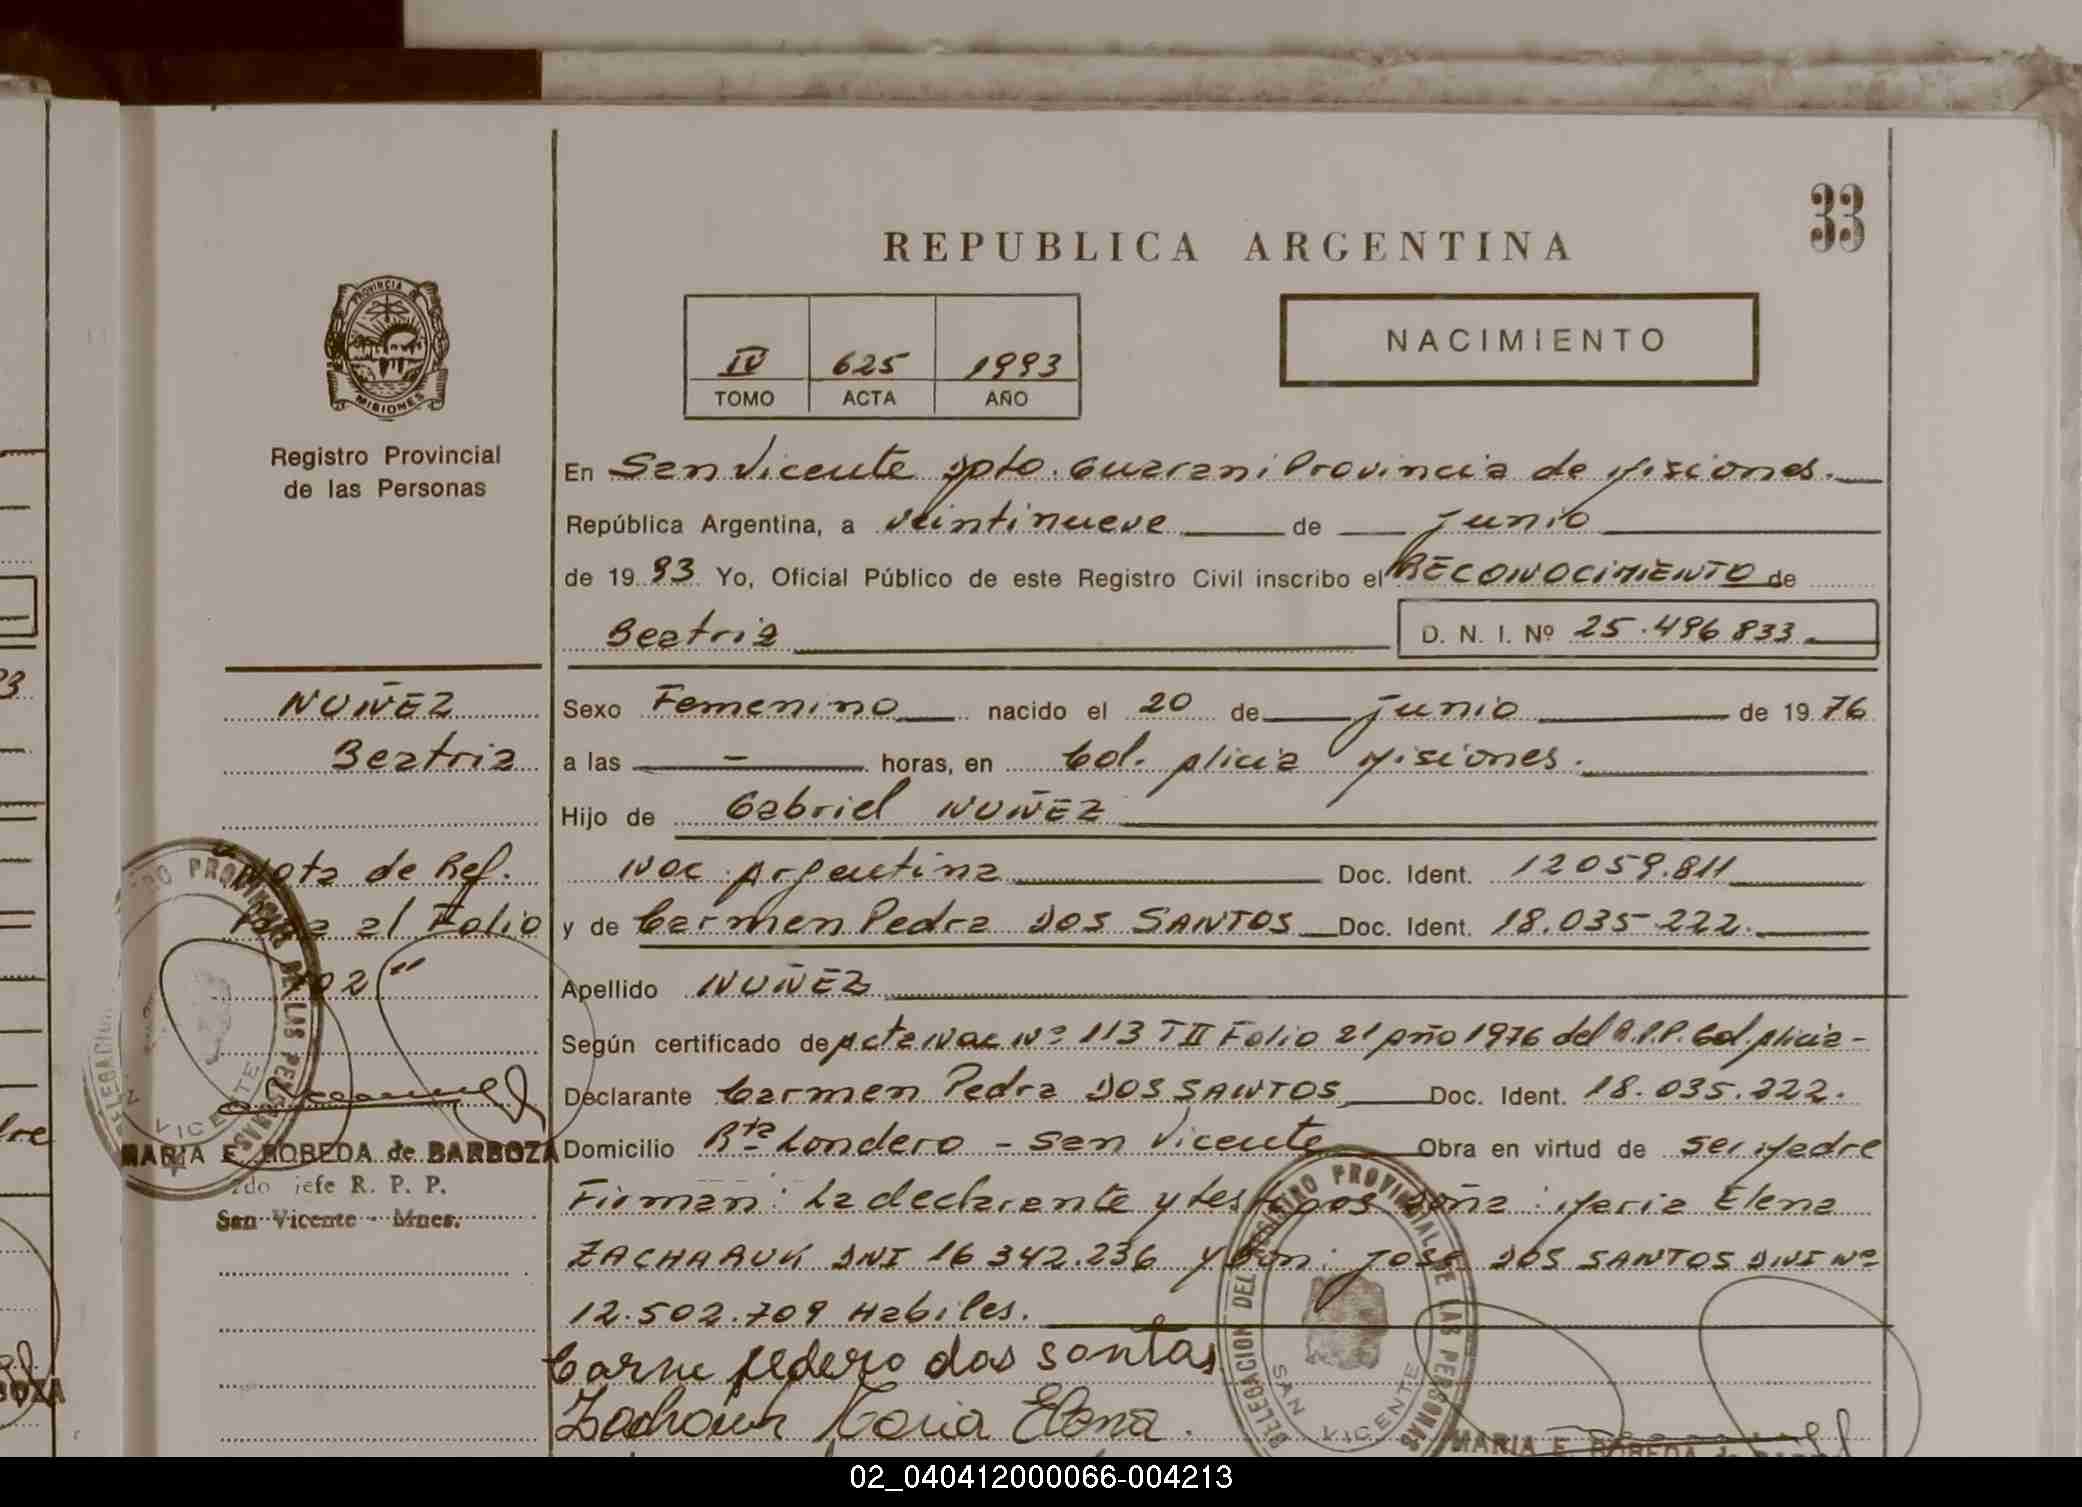 33
REPUBLICA ARGENTINA
PROVINCIA DE
MISIONES
IV 625 1993
TOMO ACTA AÑO
NACIMIENTO
Registro Provincial
de las Personas
En San Vicente Dpto. Guarani Provincia de Misiones.
República Argentina, a veintinueve de Junio
de 19 93 Yo, Oficial Público de este Registro Civil inscribo el RECONOCIMIENTO de
Beatriz D. N. I. Nº 25.496833.
NUÑEZ
Beatriz
Sexo Femenino nacido el 20 de Junio de 19 76
a las - horas, en Col. Alicia Misiones.
Hijo de Gabriel NUÑEZ
Nac. Argentina Doc. Ident. 12059.811
y de Carmen Pedra DOS SANTOS Doc. Ident. 18.035.222.
Apellido NUÑEZ
Según certificado de Acta Nac Nº 113 T II Folio 21 Año 1976 del R.P.P. Col. Alicia -
Declarante Carmen Pedra DOS SANTOS Doc. Ident. 18.035.222.
Domicilio Rta Londero - San Vicente Obra en virtud de ser Madre
Firman: La declarante y testigos Doña: Maria Elena
ZACHAAUK DNI 16342.236 y Don: JOSE DOS SANTOS DNI Nº
12.502.709 Habiles.
Carme federo dos santos
Maria Elena.
"Nota de Ref.
Pasa al Folio
02"
MARIA E. ROBEDA de BARBOZA
2do jefe R. P. P.
San Vicente - Mnes.
DELEGACION DEL REGISTRO PROVINCIAL DE LAS PERSONAS
SAN VICENTE
MARIA E. ROBEDA de
02_040412000066-004213